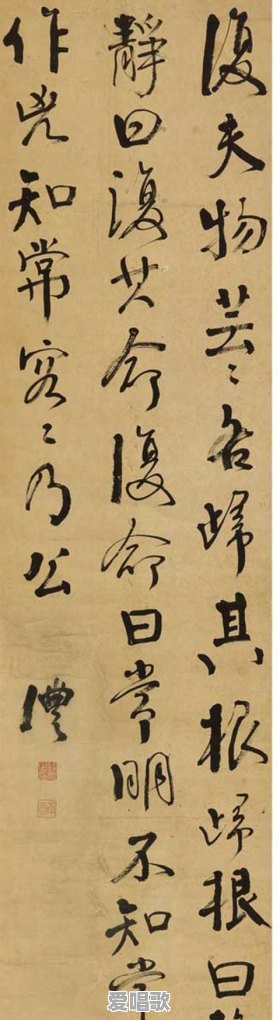 復夫物芸〻各歸其根歸根曰
靜曰復其命復命曰常明不知常
作兇知常容〻乃公
爱唱歌